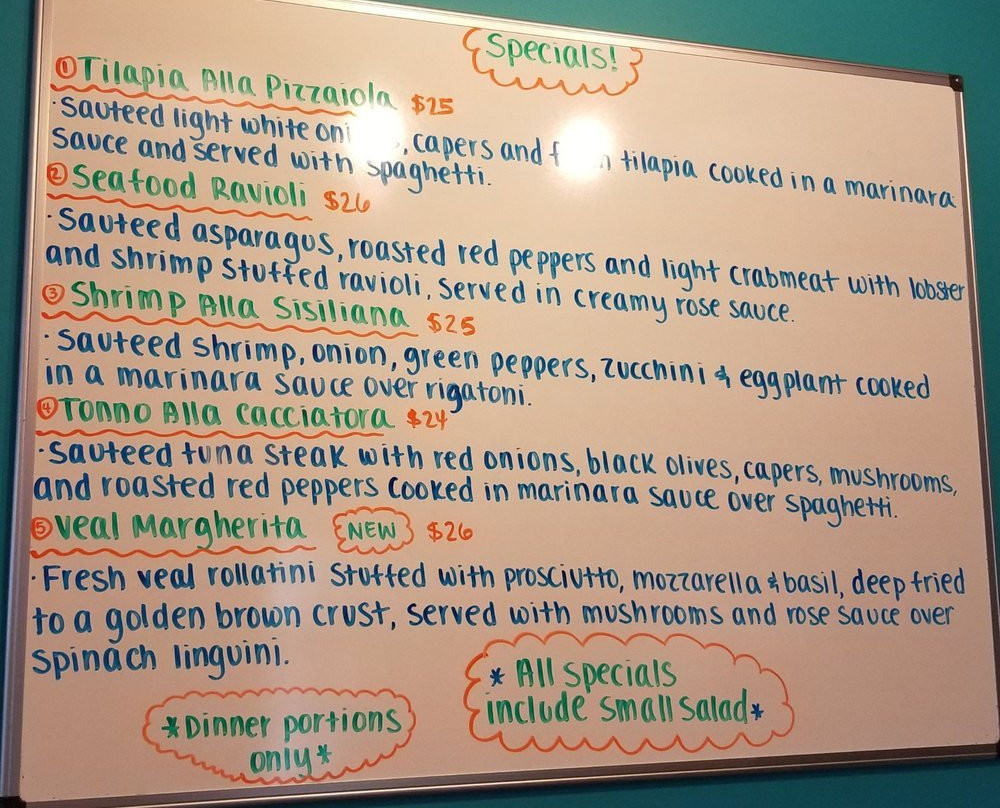 Specials!
① Tilapia Alla Pizzaiola $25
· Sauteed light white oni , capers and f tilapia cooked in a marinara
sauce and served with spaghetti.
② Seafood Ravioli $26
· Sauteed asparagus, roasted red peppers and light crabmeat with lobster
and shrimp stuffed ravioli, served in creamy rose sauce.
③ Shrimp Alla Sisiliana $25
· Sauteed shrimp, onion, green peppers, zucchini & eggplant cooked
in a marinara sauce over rigatoni.
④ Tonno Alla Cacciatora $24
· Sauteed tuna steak with red onions, black olives, capers, mushrooms,
and roasted red peppers cooked in marinara sauce over spaghetti.
⑤ Veal Margherita NEW $26
· Fresh veal rollatini stuffed with prosciutto, mozzarella & basil, deep fried
to a golden brown crust, served with mushrooms and rose sauce over
spinach linguini.
* All specials
include small salad *
* Dinner portions
only *